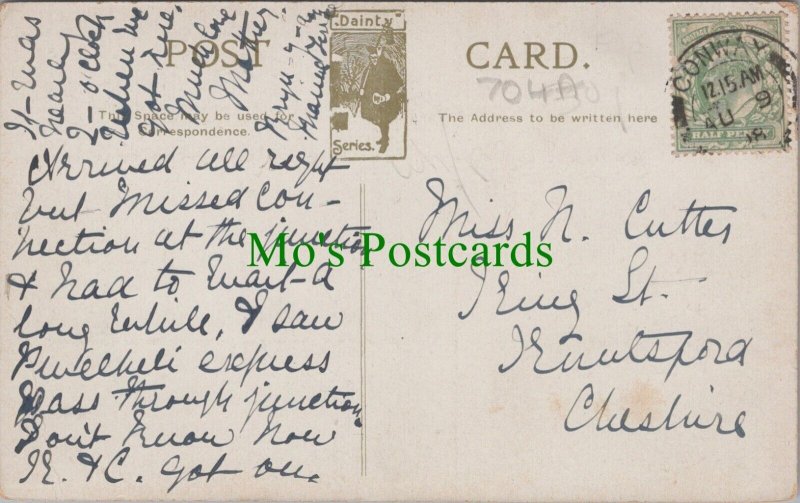 POST CARD.
Dainty
Series.
This Space may be used for
Correspondence.
The Address to be written here
704
CONWAY
12.15 AM
AU 9
08
HALF PENNY
Arrived all right
but missed con-
nection at the junction
& had to wait a
long while, I saw
Pwllheli express
pass through junction
Don't know how
K. & C. got on.
It was
nearly
2-o'clock
when we
got here.
Much love
Mother
Miss N. Cutter
King St.
Knutsford
Cheshire
Mo's Postcards